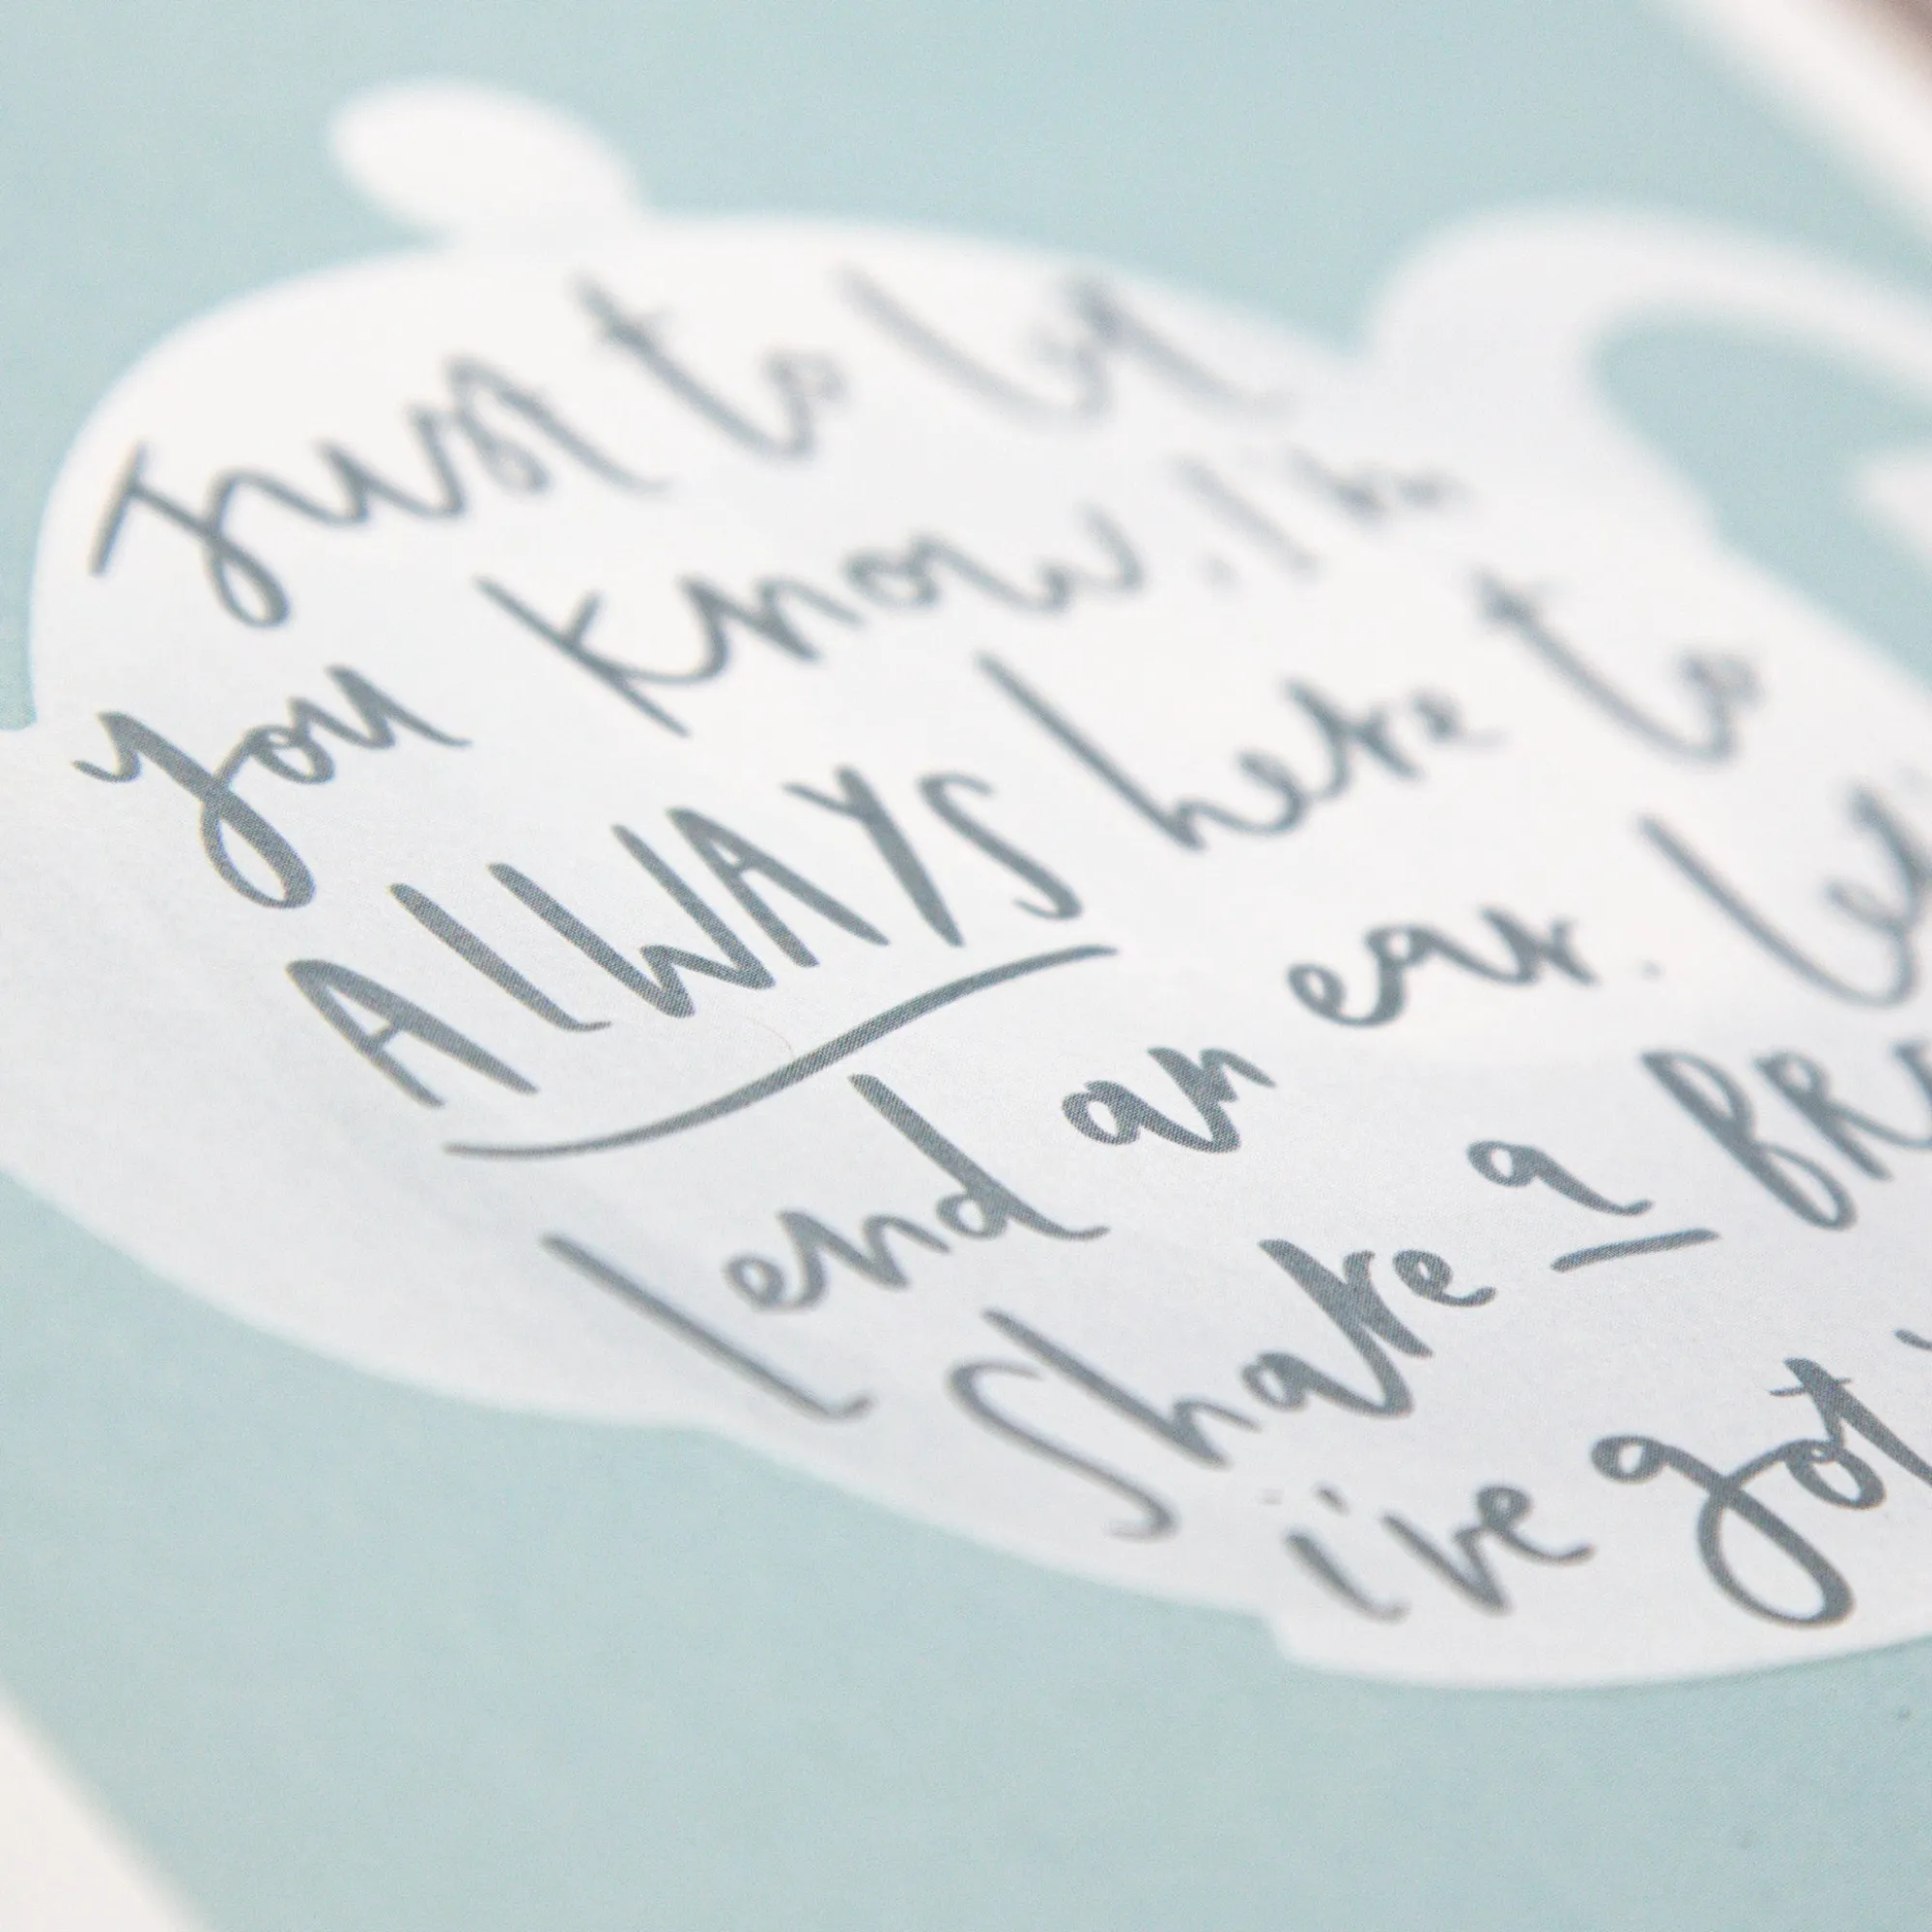 Just to let
you know. I'm
ALWAYS here to
lend an ear.
share a
i've got